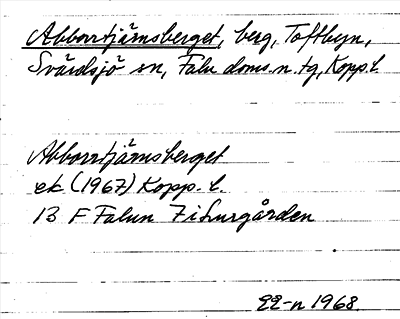 Abborrtjärnsberget, berg, Toftbyn,
Svärdsjö sn, Falu doms.n. tg, Kopp. l.
Abborrtjärnsberget
ek. (1967) Kopp. l.
13 F Falun 7 i Lurgården
22-n 1968.